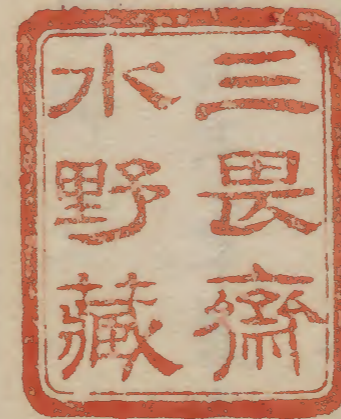 三畏齋
水野藏